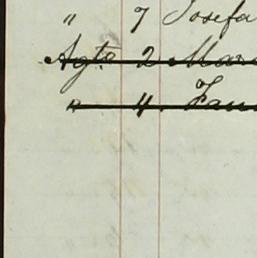 " 7 Josefa
Agto 2 Mar
" 4. Fau